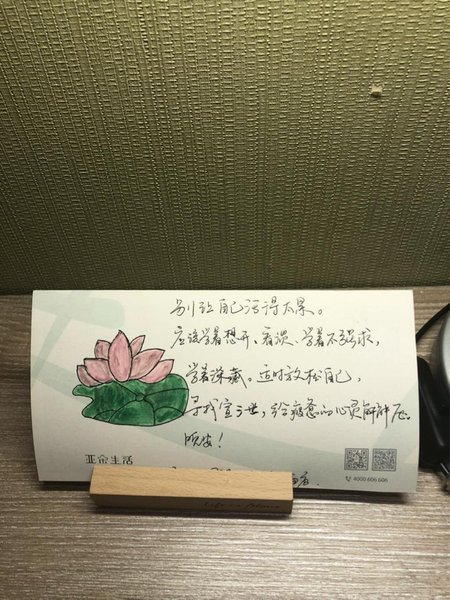 别让自己活得太累。
应该学着想开、看淡、学着不强求，
学着深藏。适时放松自己，
寻找宣泄，给疲惫的心灵解解压。
晚安！
亚朵生活
4000 606 606